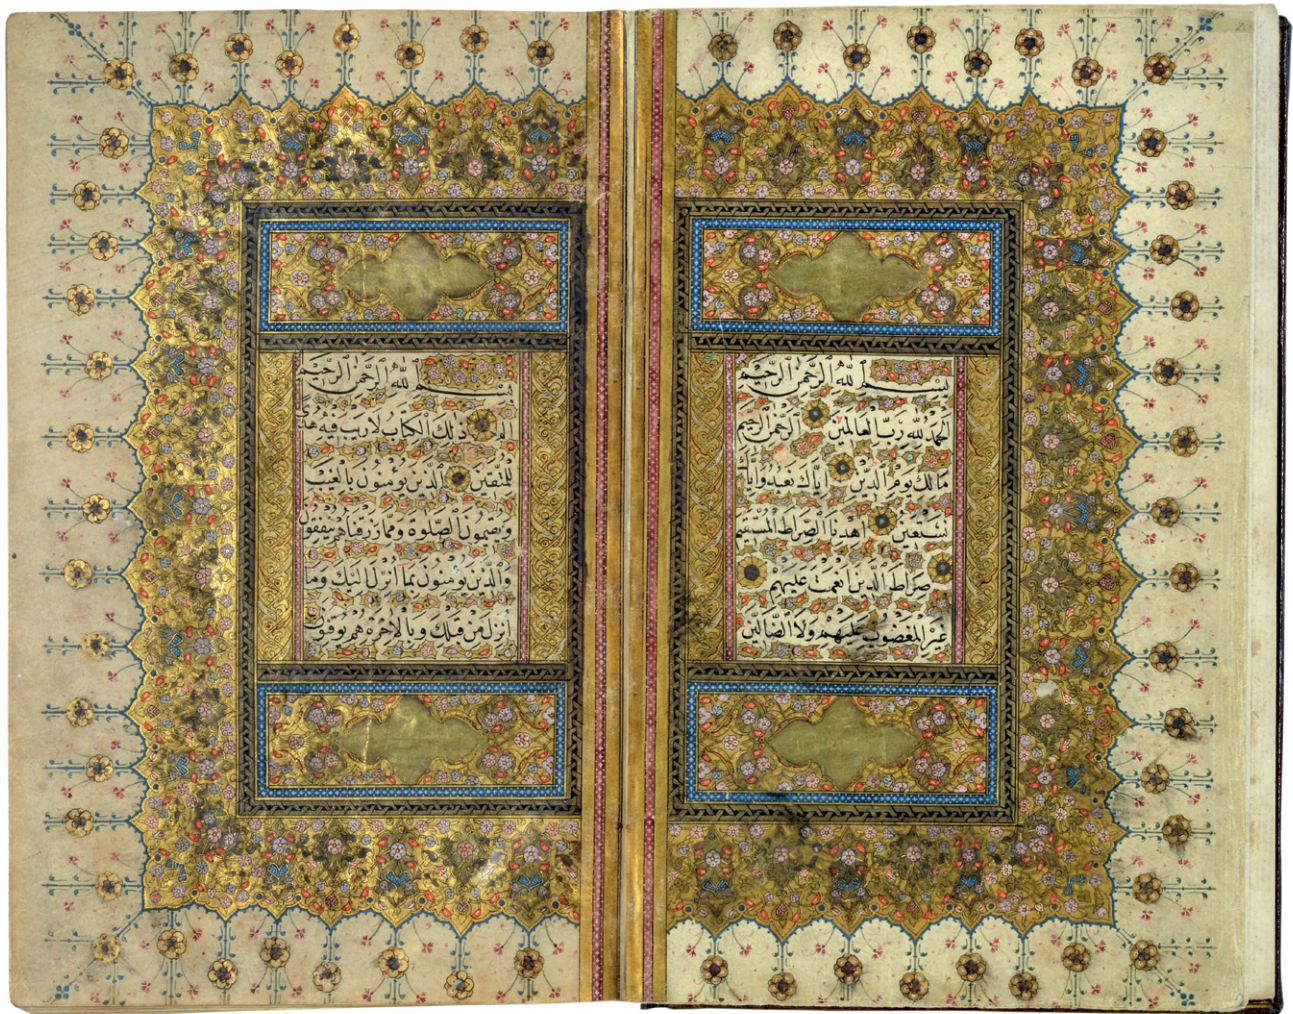 بسم الله الرحمن الرحيم
الحمد لله رب العالمين الرحمن الرحيم
مالك يوم الدين إياك نعبد وإياك
نستعين اهدنا الصراط المستقيم
صراط الذين أنعمت عليهم
غير المغضوب عليهم ولا الضالين
بسم الله الرحمن الرحيم
الم ذلك الكتاب لا ريب فيه هدى
للمتقين الذين يؤمنون بالغيب
ويقيمون الصلوة ومما رزقناهم ينفقون
والذين يؤمنون بما أنزل إليك وما
أنزل من قبلك وبالآخرة هم يوقنون